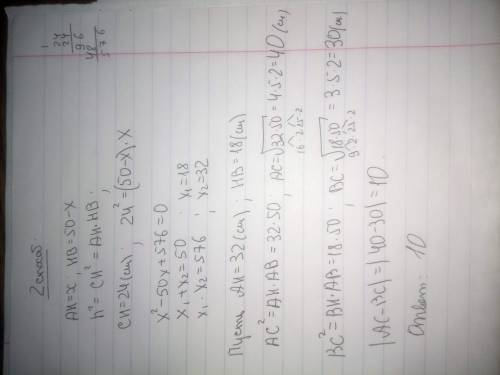 2 способ.
24
24
96
48
576
AH=x, HB=50-x
h²=CH²=AH·HB;
CH=24(см); 24²=(50-x)·x
x²-50x+576=0
x₁+x₂=50; x₁=18
x₁·x₂=576; x₂=32
Пусть AH=32(см); HB=18(см)
AC²=AH·AB=32·50; AC=√32·50=4·5·2=40(см)
16·2 25·2
BC²=BH·AB=18·50; BC=√18·50=3·5·2=30(см)
9·2 25·2
|AC-BC|=|40-30|=10.
Ответ: 10